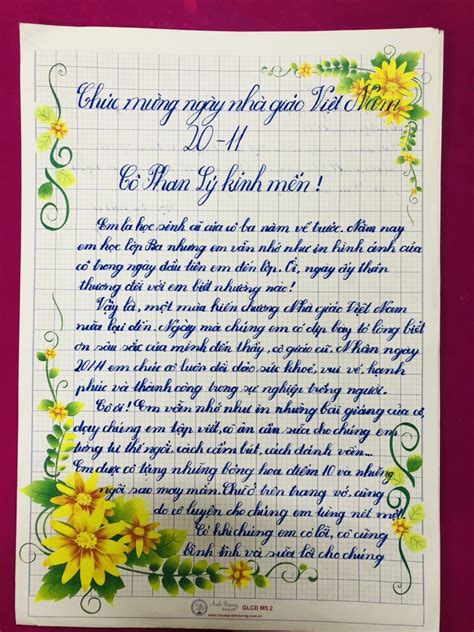 Chúc mừng ngày nhà giáo Việt Nam
20-11
Cô Phan Lý kính mến!
Em là học sinh cũ của cô ba năm về trước. Năm nay
em học lớp Ba nhưng em vẫn nhớ như in hình ảnh của
cô trong ngày đầu tiên em đến lớp. Ôi, ngày ấy thân
thương đối với em biết nhường nào!
Vậy là, một mùa hiến chương Nhà giáo Việt Nam
nữa lại đến. Ngày mà chúng em có dịp bày tỏ lòng biết
ơn sâu sắc của mình đến thầy, cô giáo cũ. Nhân ngày
20/11 em chúc cô luôn dồi dào sức khoẻ, vui vẻ, hạnh
phúc và thành công trong sự nghiệp trồng người.
Cô ơi! Em vẫn nhớ như in những bài giảng của cô,
dạy chúng em tập viết, cô ân cần sửa cho chúng em
từng tư thế ngồi, cách cầm bút, cách đánh vần...
Em được cô tặng những bông hoa điểm 10 và những
ngôi sao may mắn. Chữ ở trên trang vở, cũng
do cô luyện cho chúng em từng nét một.
Có khi chúng em có lỗi, cô cũng
bình tĩnh và sửa lỗi cho chúng
Ánh Dương
GLCD M5.2